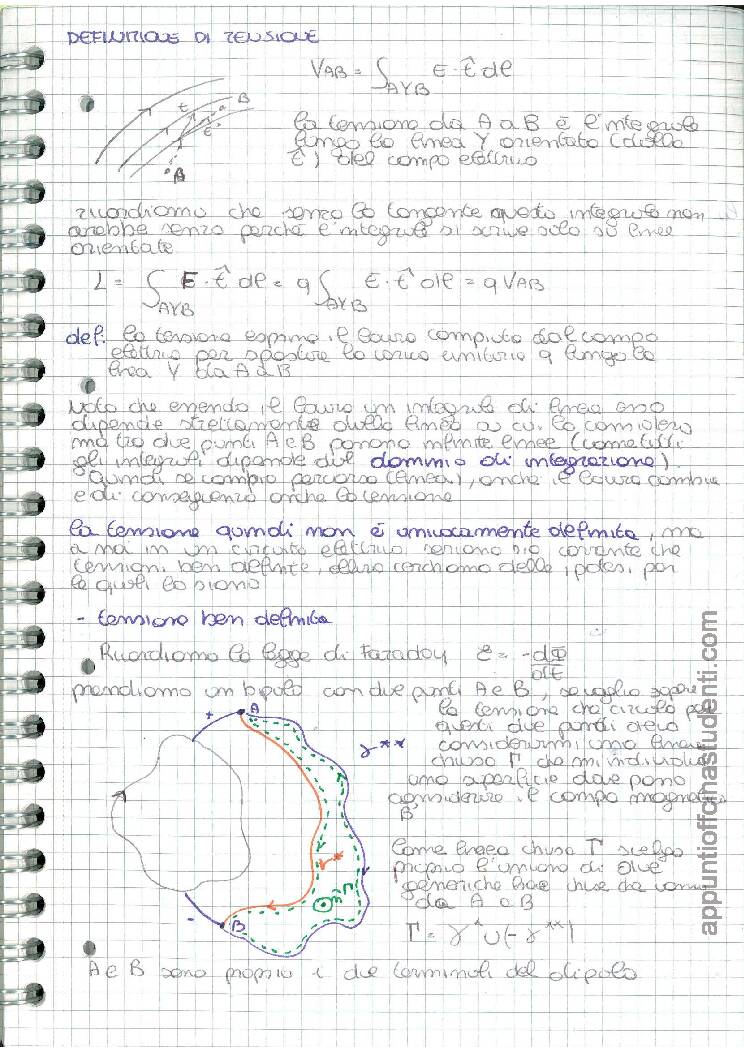 DEFINIZIONE DI TENSIONE
VAB = ∫AγB E · t̂ dl
la tensione da A a B è l'integrale
lungo la linea γ orientata (dalla
t̂) del campo elettrico
t
B
t
B
ricordiamo che senza la tangente questo integrale non
avrebbe senso perché l'integrale si scrive solo su linee
orientate
L = ∫AγB E · t̂ dl = q ∫AγB E · t̂ dl = q VAB
def: la tensione esprime il lavoro compiuto dal campo
elettrico per spostare la carica unitaria q lungo la
linea γ da A a B
Noto che essendo il lavoro un integrale di linea esso
dipende strettamente dalla linea a cui lo considero
ma tra due punti A e B passano infinite linee (come tutti
gli integrali dipende dal dominio di integrazione).
Quindi se cambio percorso (linea), anche il lavoro cambia
e di conseguenza anche la tensione
la tensione quindi non è univocamente definita, ma
a noi in un circuito elettrico servono sia correnti che
tensioni ben definite, allora cerchiamo delle ipotesi per
le quali lo siano
- tensione ben definita
Ricordiamo la legge di Faraday ε = -dΦ/dt
prendiamo un bipolo con due punti A e B, se voglio sapere
la tensione che circola per
questi due punti devo
considerarmi una linea
chiusa Γ che mi individua
una superficie dove posso
considerare il campo magnetico
B
+
A
γ**
γ*
n̂
-
B
Come linea chiusa Γ scelgo
proprio l'unione di due
generiche linee che vanno
da A a B
Γ = γ* ∪ (-γ**)
A e B sono proprio i due terminali del dipolo
appuntiofficinastudenti.com